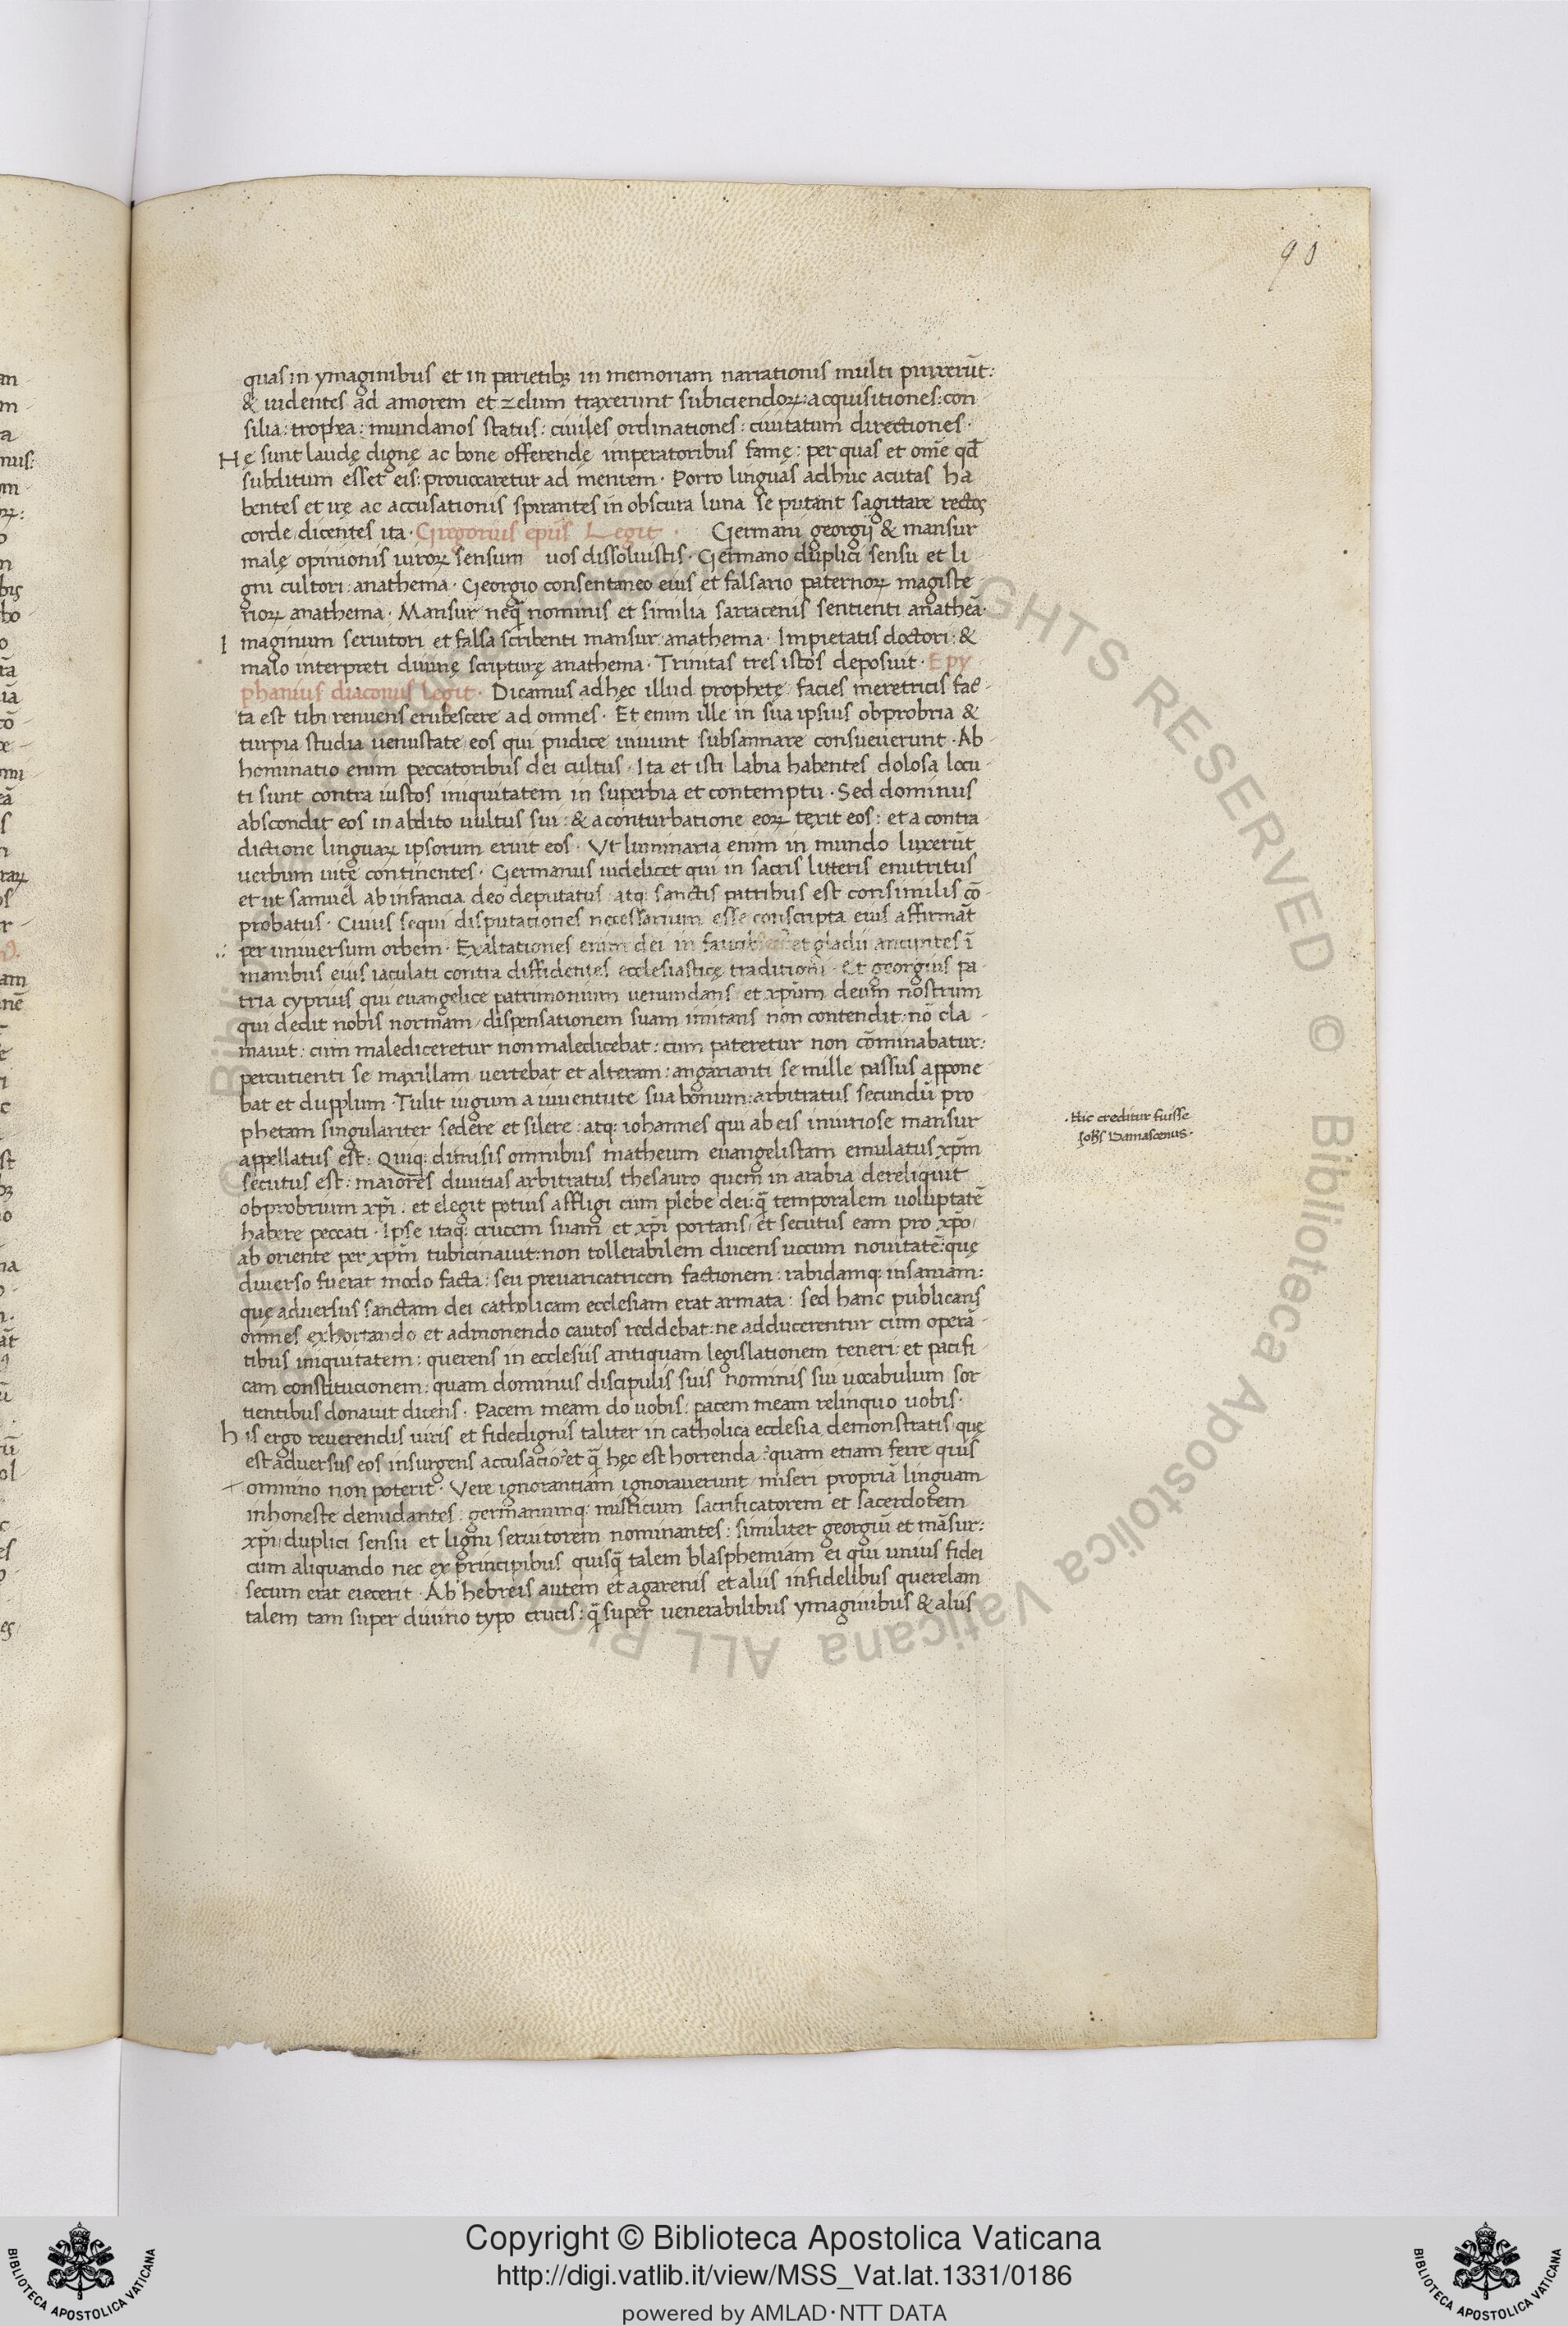 90
quas in ymaginibus et in parietibꝫ in memoriam narrationis multi pinxerūt:
& uidentes ad amorem et zelum traxerunt subiciendoꝝ: acquisitiones: con-
silia: trophea: mundanos status: ciuiles ordinationes: ciuitatum directiones.
Hę sunt laudę dignę ac bone offerendę imperatoribus famę: per quas et om̄e qđ
subditum esset eis: prouocaretur ad mentem. Porro linguas adhuc acutas ha
bentes et irę ac accusationis spirantes in obscura luna se putant sagittare rectos
corde dicentes ita. Grigorius ep̄is Legit. Germani georgij & mansur
malę opinionis uiroꝝ sensum uos dissoluistis. Germano duplici sensu et li
gni cultori: anathema. Georgio consentaneo eius et falsario paternoꝝ magiste
rioꝝ anathema. Mansur neq̄ nominis et similia sarracenis sentienti anatheā.
Imaginum seruitori et falsa scribenti mansur anathema. Impietatis doctori: &
malo interpreti diuinę scripturę anathema. Trinitas tres istos deposuit. Epy
phanius diaconus legit. Dicamus ad hęc illud prophetę facies meretricis fac-
ta est tibi renuens erubescere ad omnes. Et enim ille in sua ipsius obprobria &
turpia studia uenustate eos qui pudice uiuunt subsannare consueuerunt. Ab
hominatio enim peccatoribus dei cultus. Ita et isti labia habentes dolosa locu-
ti sunt contra iustos iniquitatem in superbia et contemptu. Sed dominus
abscondit eos in abdito uultus sui: & a conturbatione eoꝝ texit eos: et a contra
dictione linguaꝝ ipsorum eruit eos. Vt luminaria enim in mundo luxerūt
uerbum uitę continentes. Germanus uidelicet qui in sacris litteris enutritus
et ut samuel ab infancia deo deputatus atq; sanctis patribus est consimilis cō-
probatus. Cuius sequi disputaciones necessarium esse conscripta eius affirmāt
per uniuersum orbem. Exaltationes enim dei in faucibus et gladii ancipites ī
manibus eius iaculati contra diffidentes ecclesiasticę traditioni. Et georgius pa
tria cyprius qui euangelice patrimonium uenundans et xp̄um deum nostrum
qui dedit nobis normam dispensationem suam imitans non contendit: nō cla-
mauit: cum malediceretur non maledicebat: cum pateretur non cōminabatur:
percutienti se maxillam uertebat et alteram: angarianti se mille passus appone
bat et dupplum. Tulit iugum a iuuentute sua bonum: arbitratus secundū pro
phetam singulariter sedere et silere: atq; iohannes qui ab eis iniuriose mansur
appellatus est. Quiq; dimisis omnibus matheum euangelistam emulatus xp̄m
secutus est: maiores diuitias arbitratus thesauro quem in arabia dereliquit
obprobrium xp̄i: et elegit potius affligi cum plebe dei: q̄ temporalem uoluptatē
habere peccati. Ipse itaq; crucem suam et xp̄i portans, et secutus eam pro xp̄o,
ab oriente per xp̄m tubicinauit: non tollerabilem ducens uocum nouitatē: quę
diuerso fuerat modo facta: seu preuaricatricem factionem: rabidamq; insaniam:
quę aduersus sanctam dei catholicam ecclesiam erat armata: sed hanc publicans
omnes exhortando et admonendo cautos reddebat: ne adducerentur cum operā-
tibus iniquitatem: querens in ecclesiis antiquam legislationem teneri: et pacifi
cam constitucionem: quam dominus discipulis suis nominis sui uocabulum sor
tientibus donauit dicens. Pacem meam do uobis: pacem meam relinquo uobis.
His ergo reuerendis uiris et fidedignis taliter in catholica ecclesia demonstratis que
est aduersus eos insurgens accusacio? et q̄ hęc est horrenda? quam etiam ferre quis
omnino non poterit. Vere ignorantiam ignorauerunt miseri propriā linguam
inhoneste denudantes: germanumq; misticum sacrificatorem et sacerdotem
xp̄i duplici sensu et ligni seruitorem nominantes: similiter georgiū et māsur:
cum aliquando nec ex principibus quisq̄ talem blasphemiam ei qui unius fidei
secum erat eiecerit. Ab hebreis autem et agarenis et aliis infidelibus querelam
talem tam super diuino typo crucis: q̄ super uenerabilibus ymaginibus & aliis
.Hic creditur fuisse
Joh̄s Damascenus.
Copyright © Biblioteca Apostolica Vaticana
http://digi.vatlib.it/view/MSS_Vat.lat.1331/0186
powered by AMLAD·NTT DATA